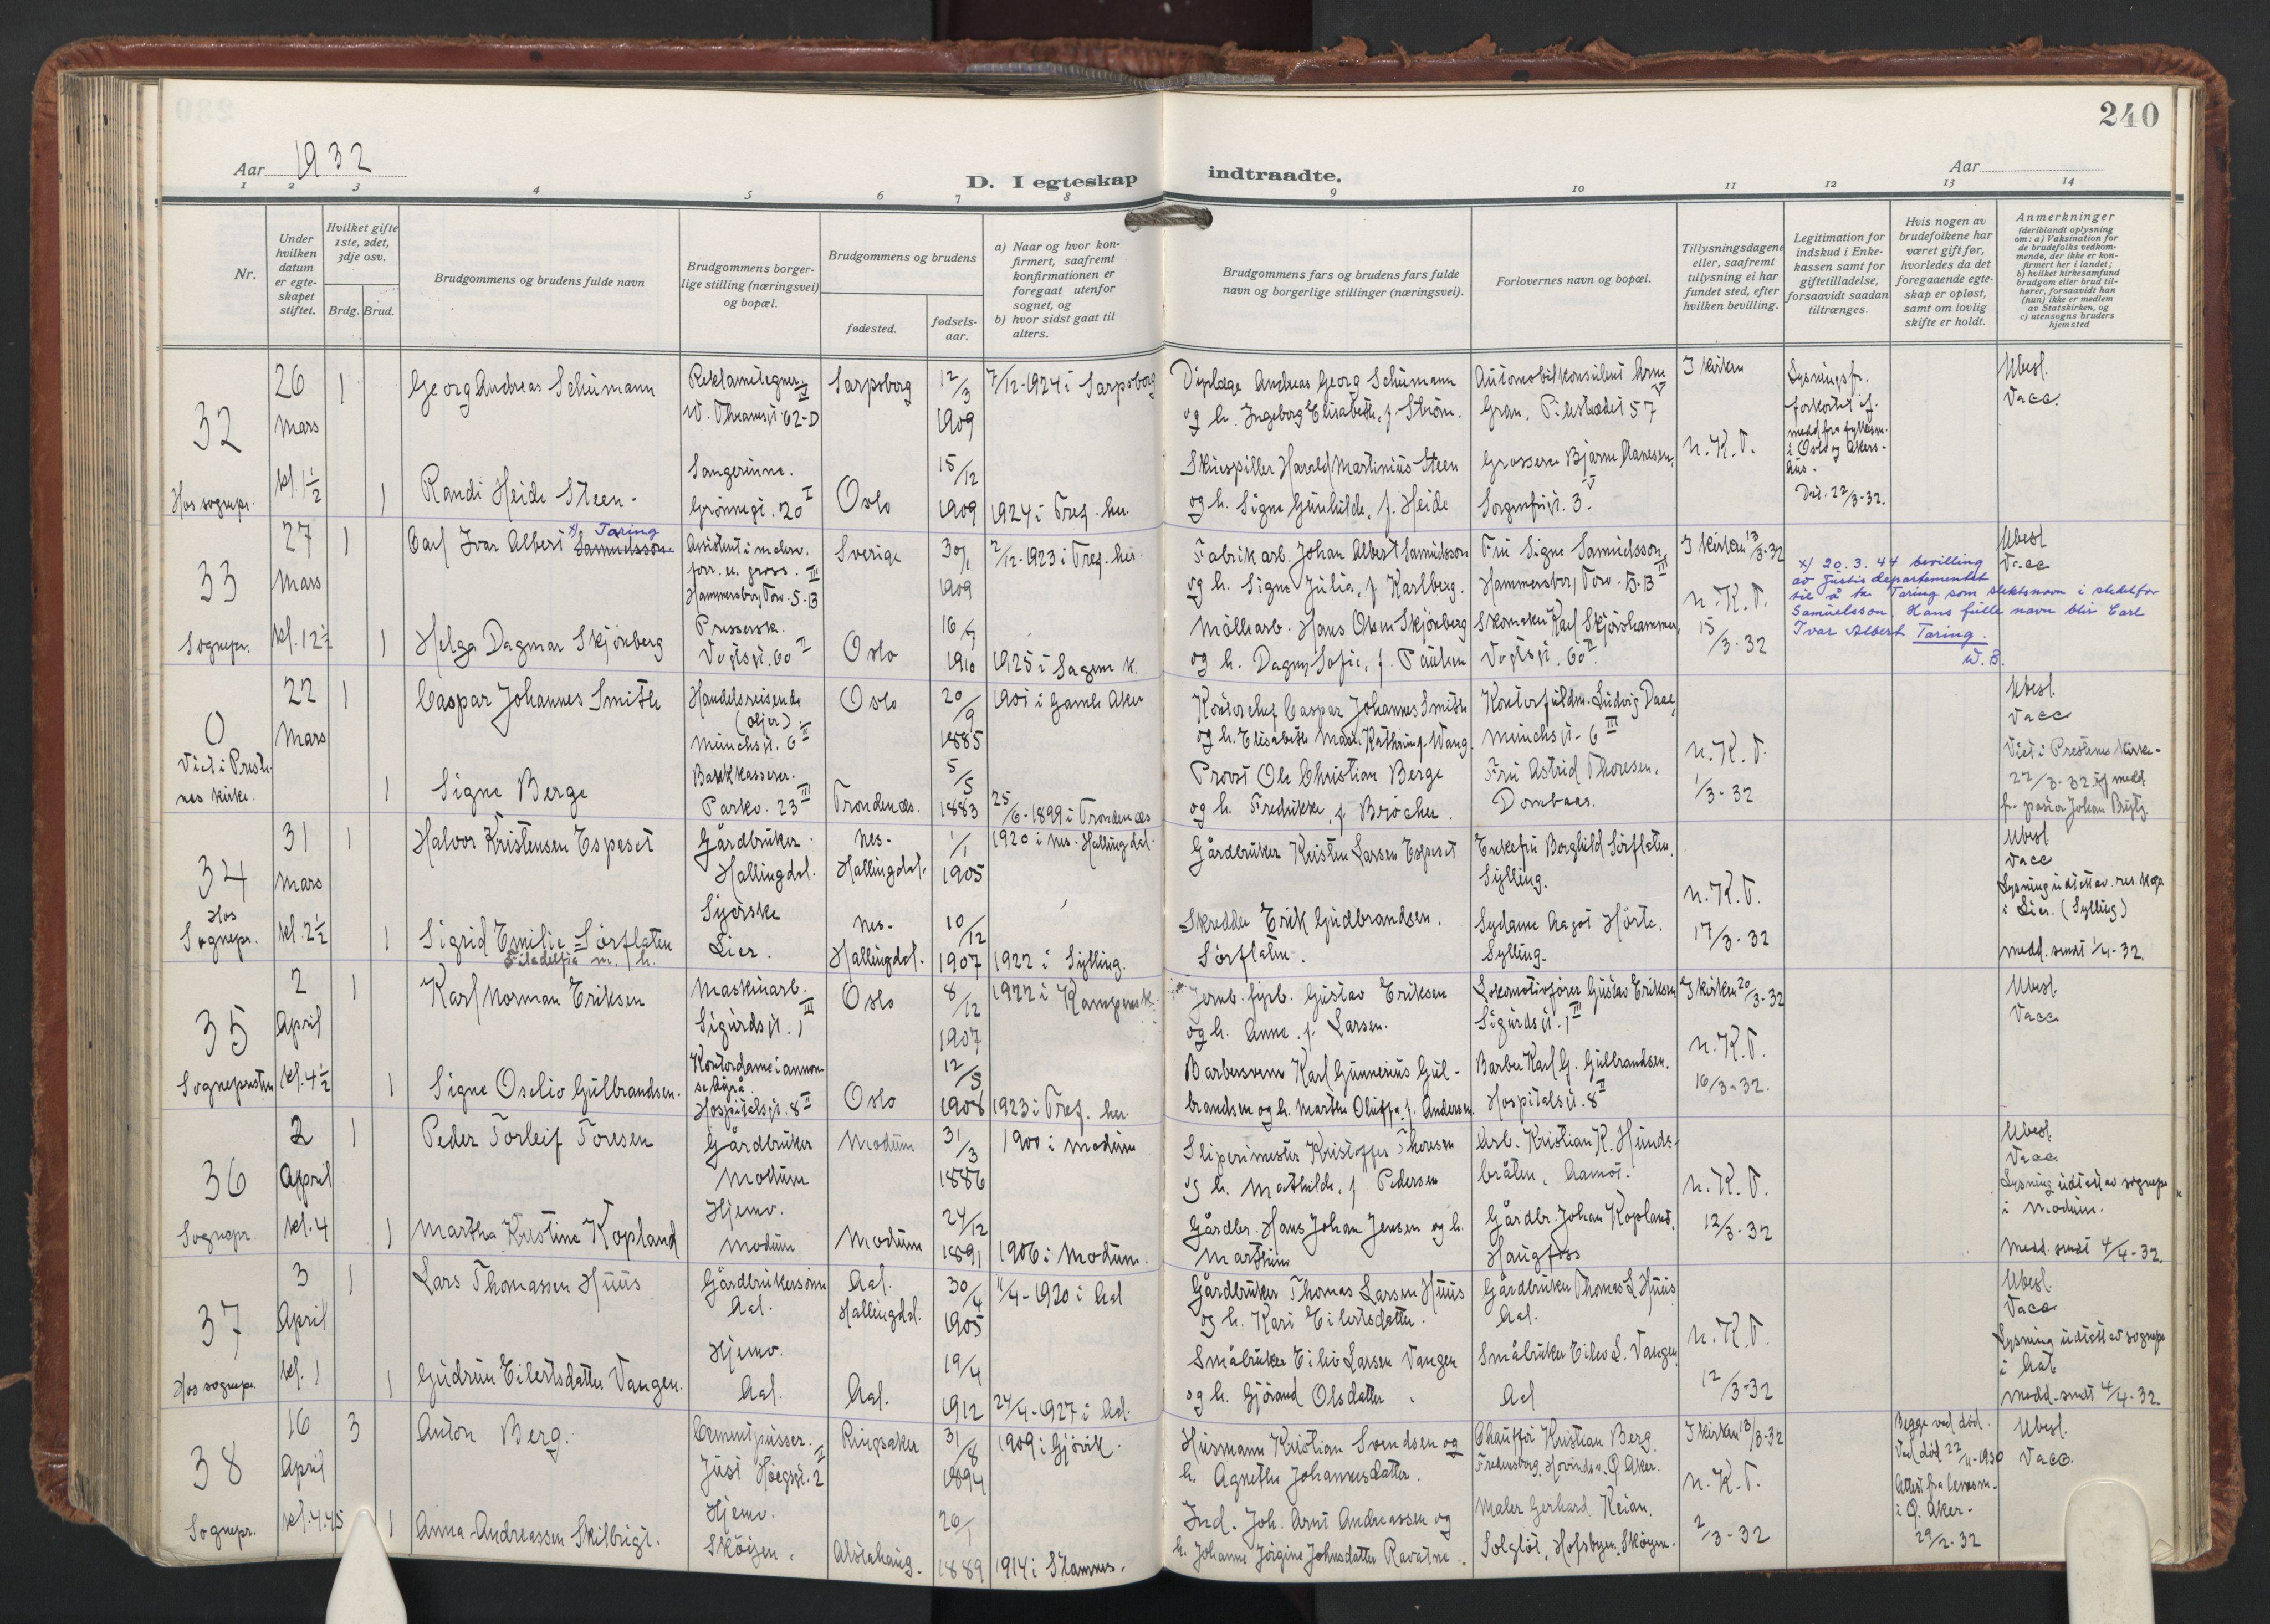 240
Aar 1932
D. I egteskap indtraadte.
Aar
1 2 3 4 5 6 7 8 9 10 11 12 13 14
Nr.
Under hvilken datum er egte-skapet stiftet.
Hvilket gifte 1ste, 2det, 3dje osv.
Brdg. Brud.
Brudgommens og brudens fulde navn
Brudgommens borger-lige stilling (næringsvei) og bopæl.
Brudgommens og brudens
fødested. fødsels-aar.
a) Naar og hvor kon-firmert, saafremt konfirmationen er foregaat utenfor sognet, og
b) hvor sidst gaat til alters.
Brudgommens fars og brudens fars fulde navn og borgerlige stillinger (næringsvei).
Forlovernes navn og bopæl.
Tillysningsdagene eller, saafremt tillysning ei har fundet sted, efter hvilken bevilling.
Legitimation for indskud i Enke-kassen samt for giftetilladelse, forsaavidt saadan tiltrænges.
Hvis nogen av brudefolkene har været gift før, hvorledes da det foregaaende egte-skap er opløst, samt om lovlig skifte er holdt.
Anmerkninger (deriblandt oplysning om: a) Vaksination for de brudefolks vedkom-mende, der ikke er kon-firmert her i landet; b) hvilket kirkesamfund brudgom eller brud til-hører, forsaavidt han (hun) ikke er medlem av Statskirken, og c) utensogns bruders hjemsted
32
Hos sognepr.
26 Mars kl. 1½
1 Georg Andreas Schumann
Reklametegner W. Thranesgt. 62-D IV
Sarpsborg
12/3 1909
7/12-1924 i Sarpsborg
Andreas Georg Schumann
og h. Ingeborg Elisabeth, f. Strøm.
Automobilkonsulent Arne Gran, Pilestrædet 57 V
I kirken
n.K.T.
Lysningsfr. forkortet if. medd fra fylkesm. i Oslo og Akers-hus. Dat. 22/3-32.
Ubesl. Vacc.
1 Randi Heide Steen.
Sangerinne. Grønnegt. 20 I
Oslo
15/12 1909
1924 i Tref. her.
Skuespiller Harald Martinius Steen
og h. Signe Gunhilde, f. Heide
Grosserer Bjarne Aanesen, Sorgenfrigt. 3. V
33
Sognepr.
27 Mars kl. 12½
1 Carl Ivar Albert x) Taring Samuelsson
Assistent i malerv. forr. en gross. III Hammersborg Torv. 5-B
Sverige
30/1 1909
2/12-1923 i Tref. her.
Fabrikarb. Johan Albert Samuelsson
og h. Signe Julia, f. Karlberg.
Fru Signe Samuelsson, Hammersborg Torv. 5-B III
I kirken 13/3-32
n.K.T.
15/3-32
x) 20.3.44 bevilling
av Justisdepartementet
til å ta Taring som slektsnavn i stedetfor
Samuelsson. Hans fulle navn blir Carl
Ivar Albert Taring.
W.B.
Ubesl Vacc
1 Helga Dagmar Skjønberg
Presserske. Vogtsgt. 60 I
Oslo
16/7 1910
1925 i Sagene k.
Møllearb. Hans Olsen Skjønberg
og h. Dagny Sofie, f. Paulsen
Skomaker Karl Skjørshammer, Vogtsgt. 60 II.
0
Viet i Preste-nes kirke.
22 Mars
1 Caspar Johannes Smith
Handelsreisende (oljer). Munchsgt. 6 II
Oslo
20/9 1885
1901 i Gamle Aker
Kontorchef Caspar Johannes Smith
og h. Elisabeth Marie Kathrine f. Wang.
Kontorfuldm. Ludvig Daae, Munchsgt. 6 III
n.K.T.
1/3-32
Ubesl. Vacc
Viet i Prestenes kirke-22/3-32 if medd f. pastor Johan
1 Signe Berge
Bankkasserer. Parkv. 23 III
Trondenæs.
5/5 1883
25/6-1899 i Trondenæs
Provst Ole Christian Berge
og h. Fredrikke, f Brøcher.
Fru Astrid Thoresen, Dombaas.
34
Hos Sognepr.
31 Mars kl. 2½
1 Halvor Kristensen Espeset
Gårdbruker. Hallingdal.
Nes-Hallingdal.
1/1 1905
1920 i Nes-Hallingdal.
Gårdbruker Kristen Larsen Espeset
Enkefru Borghild Sørflaten, Sylling.
n.K.T.
17/3-32
Ubesl Vacc
Lysning utstett av res. kap. i Lier. (Sylling)
medd. sendt 1/4-32.
1 Sigrid Emilie Sørflaten
Filadelfia m. h.
Syerske Lier.
Nes-Hallingdal.
10/12 1907
1922 i Sylling.
Skredder Erik Gudbrandsen Sørflaten.
Sydame Aagot Hörte. Sylling.
35
Sognepresten
2 April kl. 4½
1 Karl Norman Eriksen
Maskinarb. Sigurdsgt. 1 III
Oslo
8/12 1907
1922 i Kampens k.
Jernb. fyrb. Gustav Eriksen
og h. Anne, f. Larsen.
Lokomotivfører Gustav Eriksen Sigurdsgt. 1 III
I kirken 20/3-32
n.K.T.
16/3-32.
Ubesl. Vacc
1 Signe Oselio Gulbrandsen.
Kontordame i annon-sebyrå. Hospitalsgt. 8 II
Oslo
12/5 1908
1923 i Tref. her.
Barbersvenn Karl Gunnerius Gul-
brandsen og h. Marthe Oluffa, f. Andersen.
Barber Karl G. Gulbrandsen. Hospitalsgt. 8 II
36
Sognepr.
2 April kl. 4
1 Peder Torleif Toresen
Gårdbruker Modum
Modum
31/3 1886
1900 i Modum
Sliperimester Kristoffer Thoresen
og h. Mathilde, f Pedersen
Arb. Kristian K. Hunds-bråten, Aamot.
n.K.T.
12/3-32
Ubesl. Vacc.
Lysning utstett av sognepr i Modum.
Medd. sendt 4/4-32.
1 Martha Kristine Kopland
Hjemv. Modum
Modum
24/12 1891
1906 i Modum.
Gårdbr. Hans Johan Jensen og h.
Marthine
Gårdbr. Johan Kopland, Haugfoss
37
Hos sognepr.
3 April kl. 1
1 Lars Thomassen Huus
Gårdbrukersønn Aal.
Aal. Hallingdal.
30/4 1905
11/4-1920 i Aal
Gårdbruker Thomas Larsen Huus
og h. Kari Eilertsdatter.
Gårdbruker Thomas L Huus, Aal.
n.K.T.
12/3-32
Ubesl. Vacc
Lysning utstett av sognepr i Aal
Medd. sendt 4/4-32.
1 Gudrun Eilertsdatter Vangen.
Hjemv. Aal.
Aal.
19/4 1912
24/4-1927 i Aal.
Småbruker Eiliv Larsen Vangen
og h. Gjörand Olsdatter.
Småbruker Eiliv L. Vangen, Aal
38
Sognepr.
16 April kl. 4.45
3 Anton Berg.
Cementpusser. Just Høegsgt. 2 II
Ringsaker
31/8 1894
1909 i Gjövik.
Husmann Kristian Svendsen og
h. Agnethe Johannesdatter.
Chauffør Kristian Berg. Fredensborg, Hovindsv. Ø. Aker.
I kirken 13/3-32
n.K.T.
2/3-32
Begge ved död. Ved död 22/11-1930
Attest fra lensm. i Ø. Aker- 29/2-32
Ubesl. Vacc.
1 Anna Andreassen Skilbrigt.
Hjemv. Sköyen.
Alstahaug.
26/1 1889
1914 i Stamnes.
Ind. Joh. Arnt Andreassen og
h. Johanne Jörgine Johnsdatter Ravatne.
Maler Gerhard Keian. Solglöt, Hofsbyen, Sköyen.